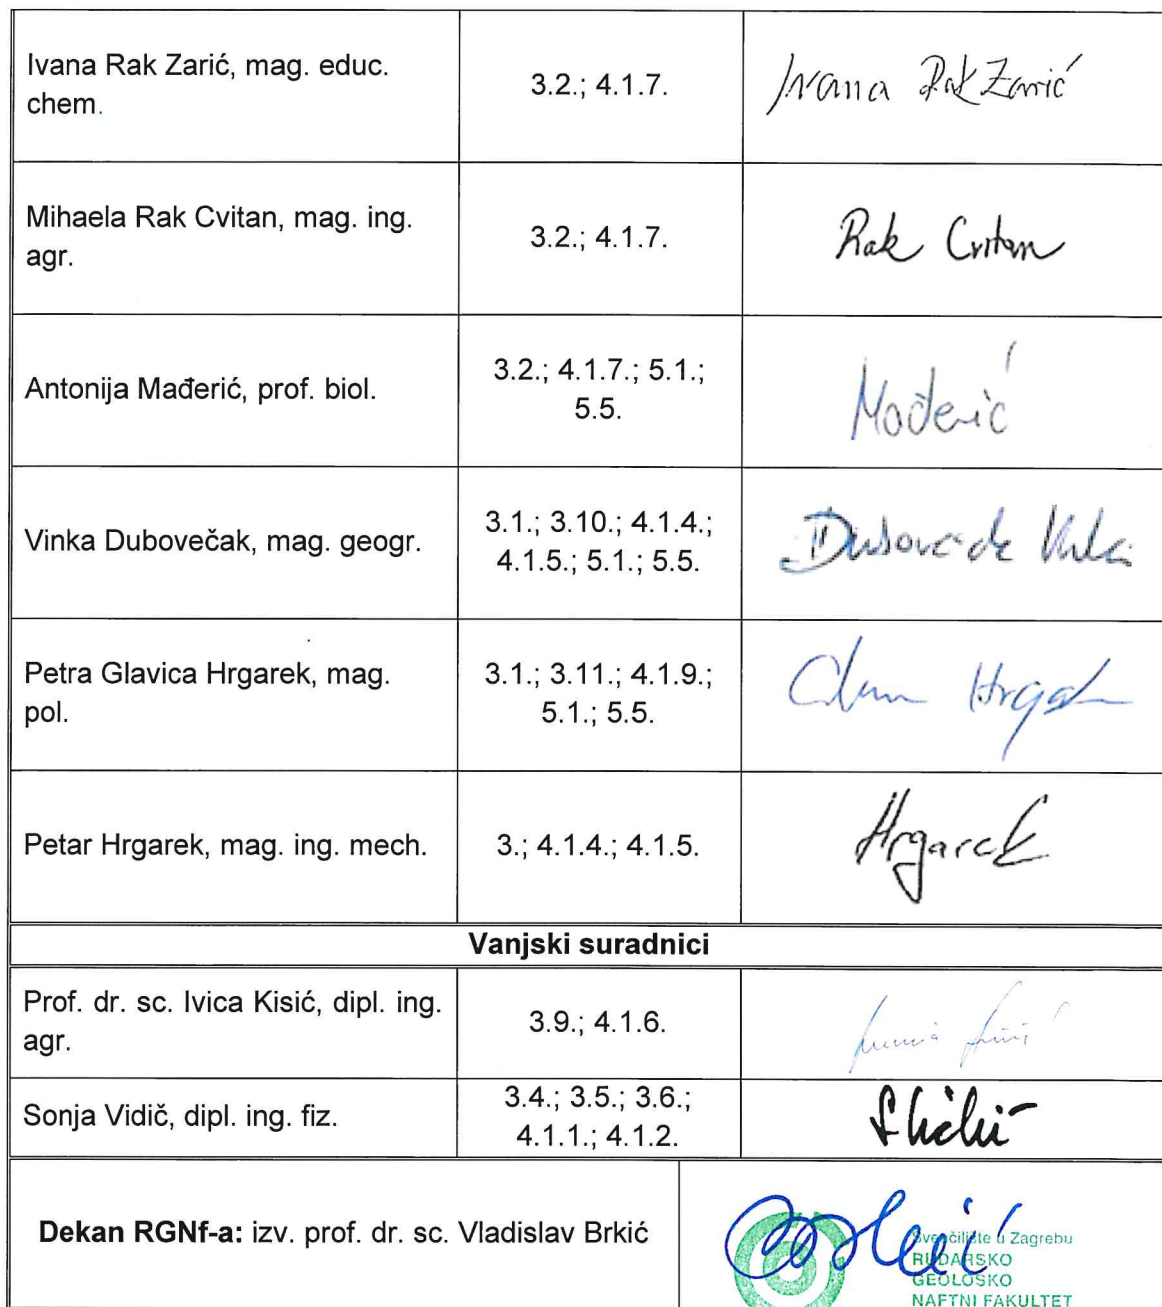 Ivana Rak Zarić, mag. educ.
chem.
3.2.; 4.1.7.
Ivana Rak Zarić
Mihaela Rak Cvitan, mag. ing.
agr.
3.2.; 4.1.7.
Rak Cvitan
Antonija Mađerić, prof. biol.
3.2.; 4.1.7.; 5.1.;
5.5.
Mađerić
Vinka Dubovečak, mag. geogr.
3.1.; 3.10.; 4.1.4.;
4.1.5.; 5.1.; 5.5.
Petra Glavica Hrgarek, mag.
pol.
3.1.; 3.11.; 4.1.9.;
5.1.; 5.5.
Petar Hrgarek, mag. ing. mech.
3.; 4.1.4.; 4.1.5.
Hrgarek
Vanjski suradnici
Prof. dr. sc. Ivica Kisić, dipl. ing.
agr.
3.9.; 4.1.6.
Sonja Vidič, dipl. ing. fiz.
3.4.; 3.5.; 3.6.;
4.1.1.; 4.1.2.
Dekan RGNf-a: izv. prof. dr. sc. Vladislav Brkić
Sveučilište u Zagrebu
RUDARSKO
GEOLOŠKO
NAFTNI FAKULTET